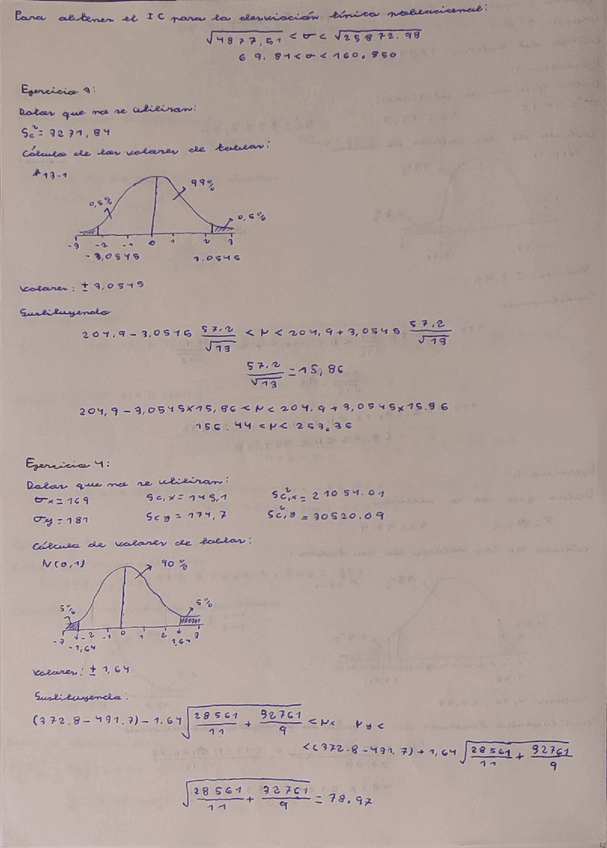 Para obtener el IC para la desviación típica poblacional:
√4877,51 < σ < √25872.98
69.81 < σ < 160.850
Ejercicio 3:
Datos que no se utilizan:
Sc² = 3271,84
Cálculo de los valores de tablas:
t13-1
99%
0,5%
0,5%
-3 -2 -1 0 1 2 3
-3,0545 3.0545
Valores: ± 3,0545
Sustituyendo
204,9 - 3,0545 57,2/√13 < μ < 204,9 + 3,0545 57,2/√13
57.2/√13 = 15,86
204,9 - 3,0545 x 15,86 < μ < 204.9 + 3,0545 x 15.86
156.44 < μ < 253.36
Ejercicio 4:
Datos que no se utilizan:
σx = 169 Sc,x = 145,1 Sc²,x = 21054.01
σy = 181 Sc,y = 174,7 Sc²,y = 30520.09
Cálculo de valores de tablas:
N(0,1)
90%
5%
5%
-3 -2 -1 0 1 2 3
-1,64 1,64
Valores: ± 1,64
Sustituyendo:
(372.8 - 431.7) - 1,64 √28561/11 + 32761/9 < μx μy <
< (372.8 - 431.7) + 1,64 √28561/11 + 32761/9
√28561/11 + 32761/9 = 78.97